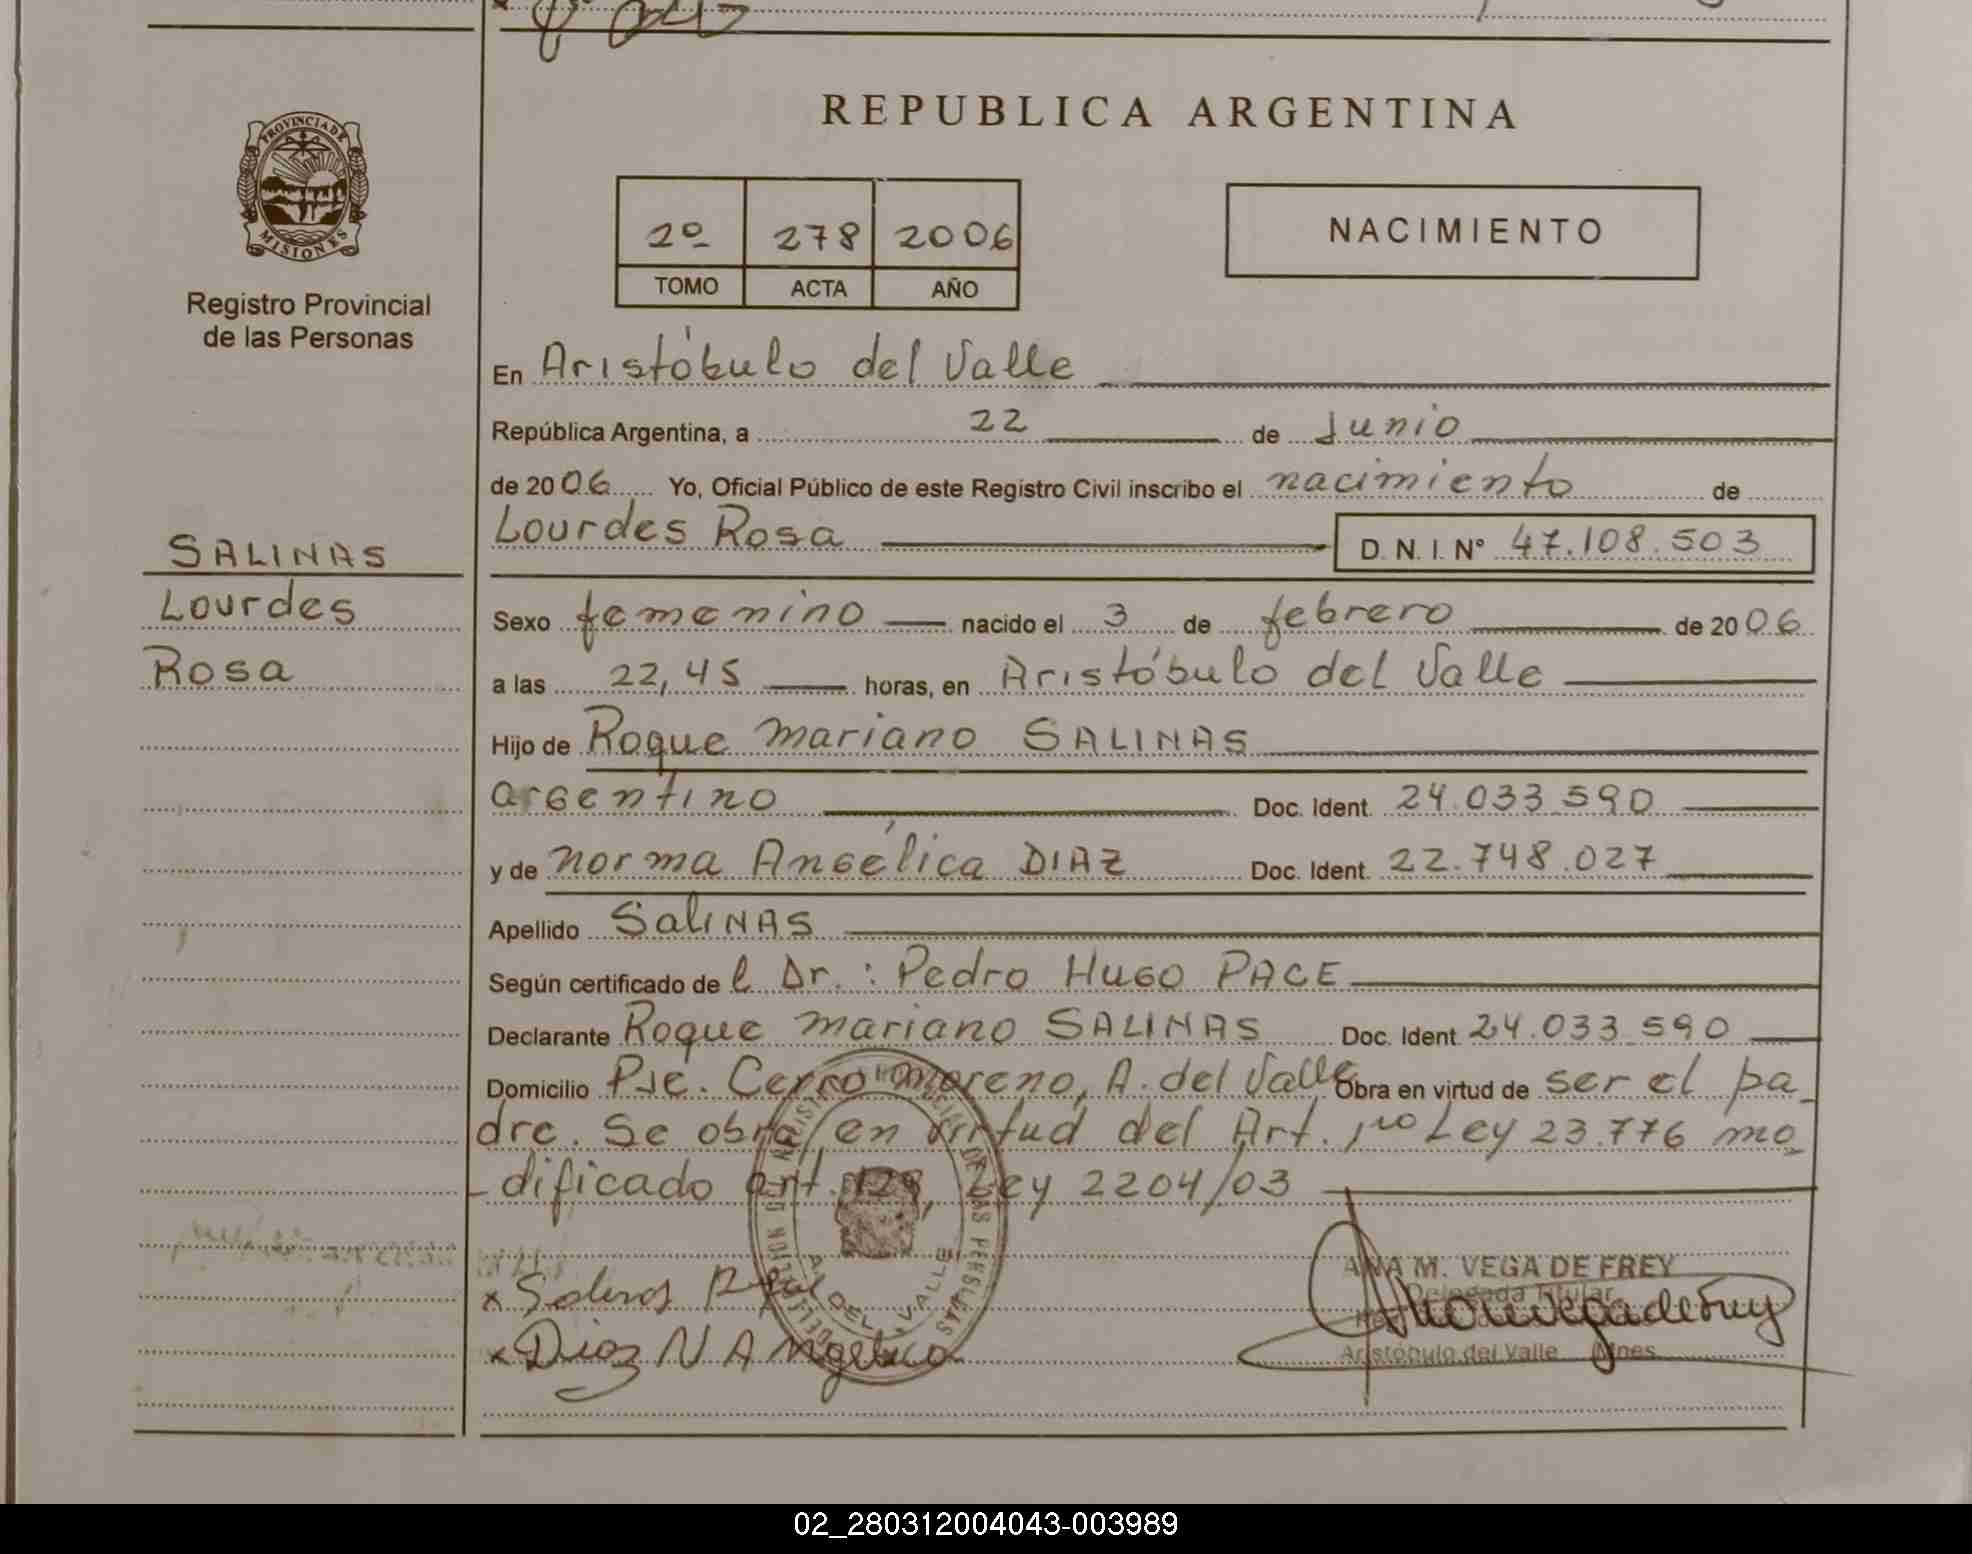 REPUBLICA ARGENTINA
PROVINCIA DE
MISIONES
Registro Provincial
de las Personas
2º 278 2006
TOMO ACTA AÑO
NACIMIENTO
En Aristóbulo del Valle
República Argentina, a 22 de Junio
de 2006 Yo, Oficial Público de este Registro Civil inscribo el nacimiento de
Lourdes Rosa D. N. I. Nº 47.108.503
SALINAS
Lourdes
Rosa
Sexo femenino nacido el 3 de febrero de 2006
a las 22,45 horas, en Aristóbulo del Valle
Hijo de Roque Mariano SALINAS
argentino Doc. Ident. 24.033.590
y de Norma Angélica DIAZ Doc. Ident. 22.748.027
Apellido SaliNAS
Según certificado de l Dr.: Pedro Hugo PACE
Declarante Roque Mariano SALINAS Doc. Ident. 24.033.590
Domicilio Pje. Cerro Moreno, A. del Valle Obra en virtud de ser el pa
dre. Se obra en virtud del Art. 1ro Ley 23.776 mo
-dificado art. 128, Ley 2204/03
x Salinas
x Diaz N Angelica
A. DEL VALLE
ANA M. VEGA DE FREY
Delegada Titular
Aristóbulo del Valle Mnes
02_280312004043-003989